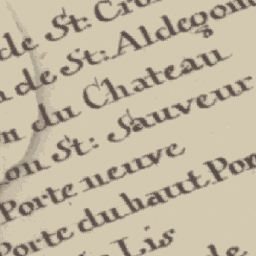 de St: Cro
de St: Aldegon
du Chateau
on St: Sauveur
Porte neuve
Porte du haut Pon
Lis
de